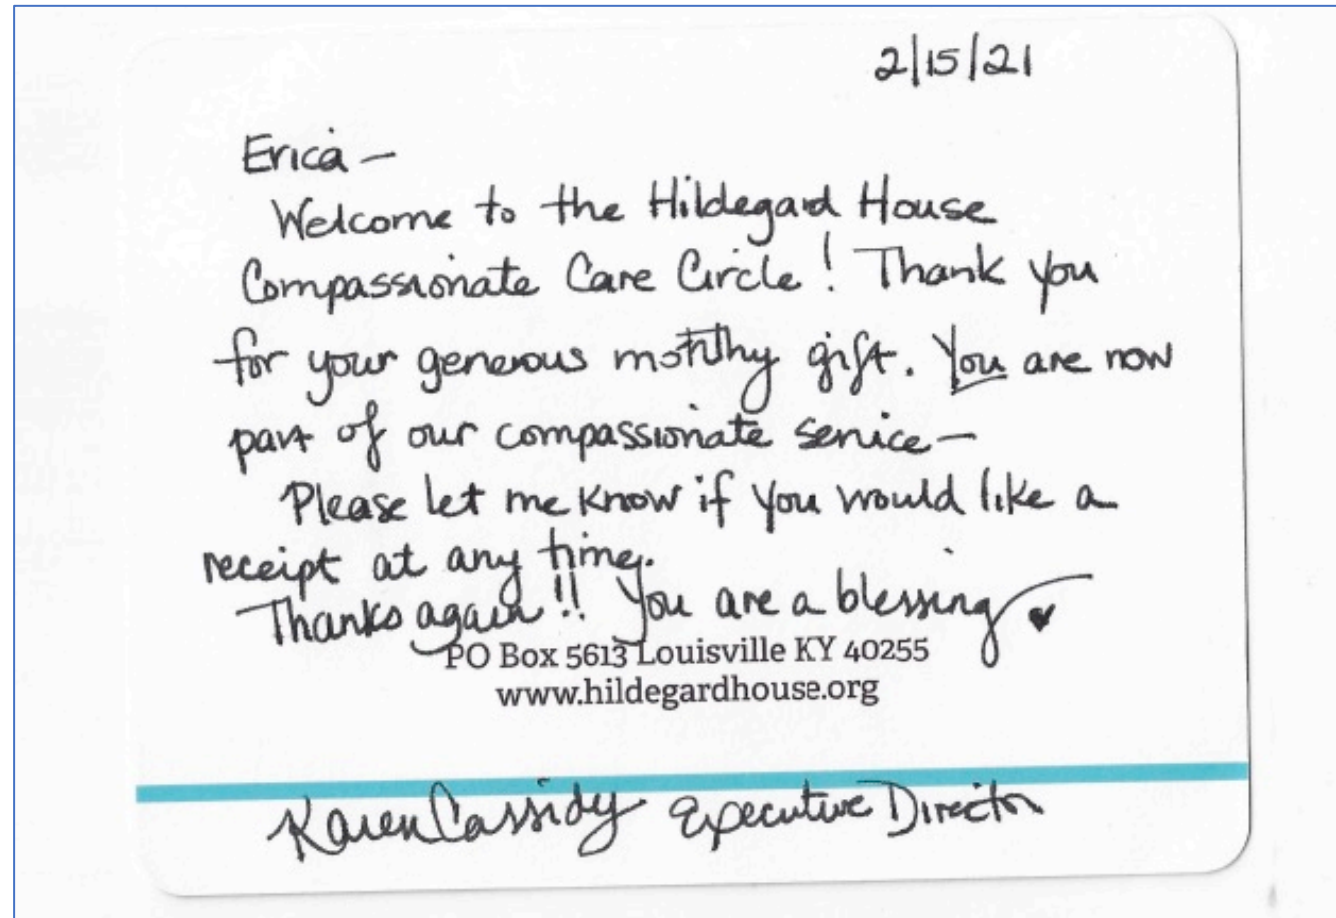 2/15/21
Erica –
Welcome to the Hildegard House
Compassionate Care Circle! Thank you
for your generous monthly gift. You are now
part of our compassionate service –
Please let me know if you would like a
receipt at any time.
Thanks again!! You are a blessing ♥
PO Box 5613 Louisville KY 40255
www.hildegardhouse.org
Karen Cassidy Executive Director